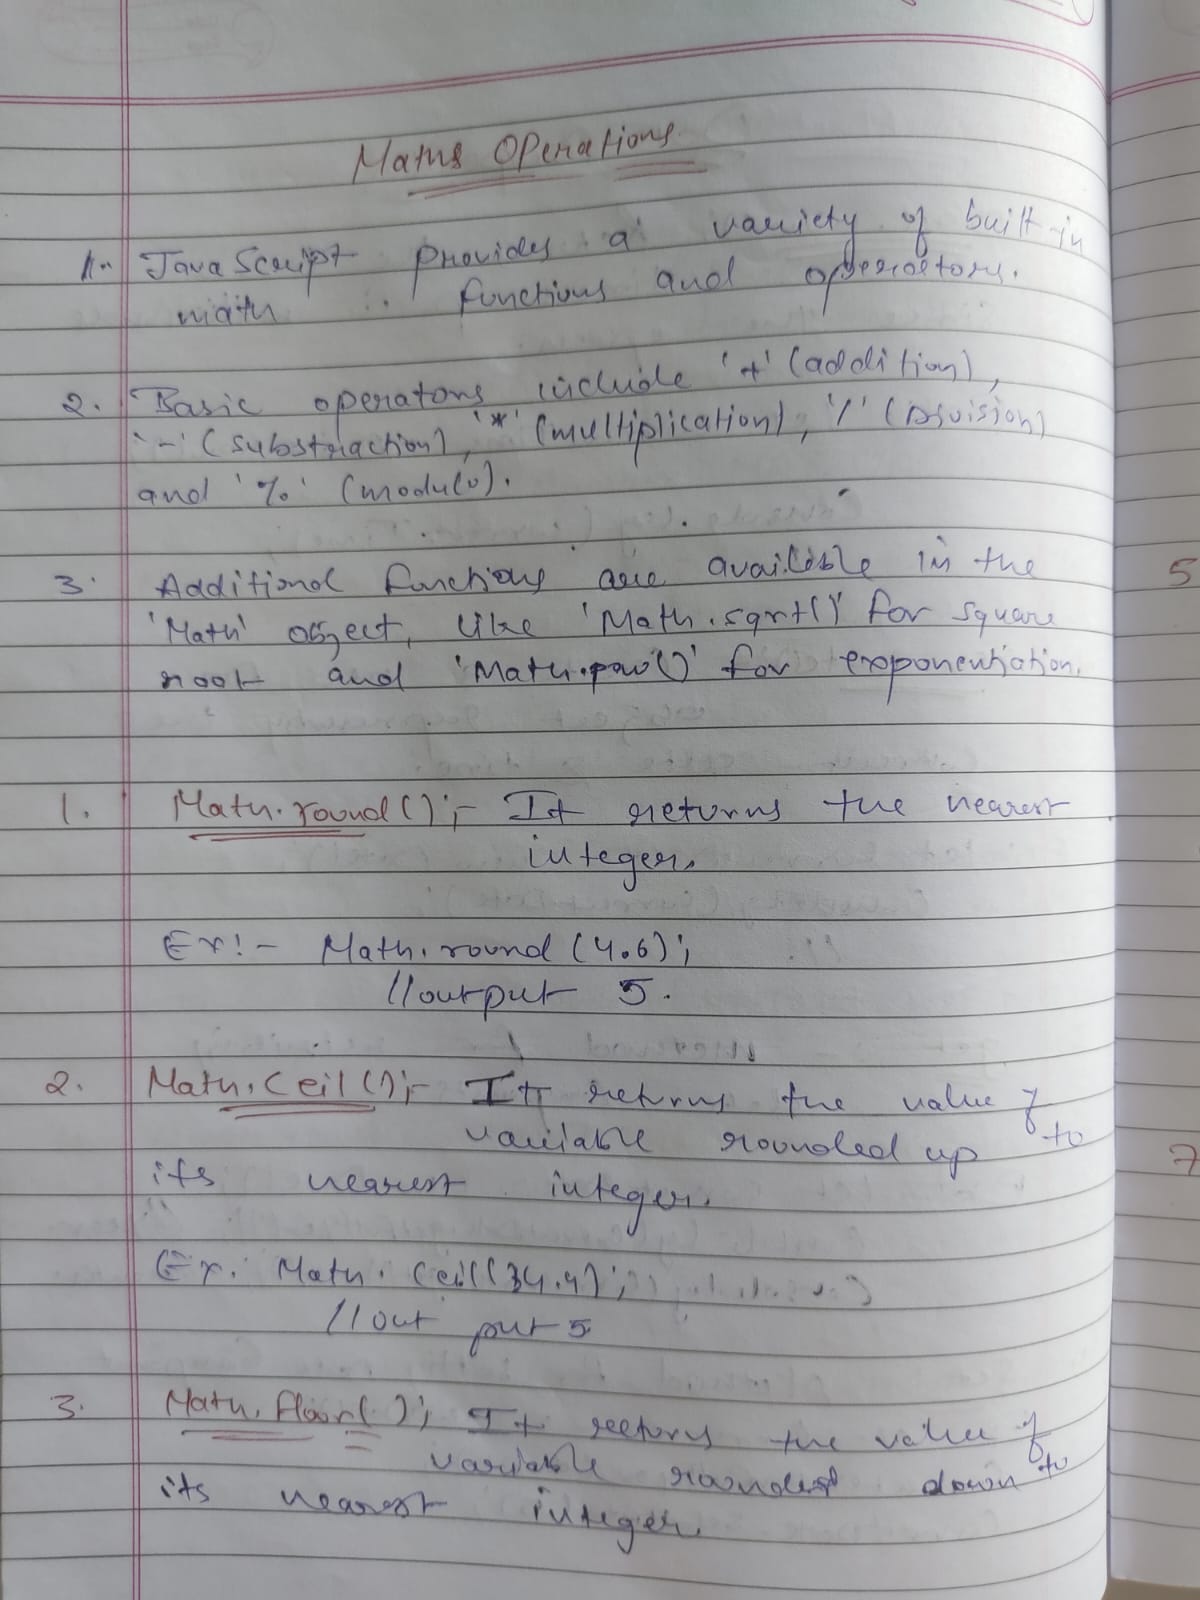 Maths Operations
1. JavaScript provides a variety of built-in
math functions and operators.
2. Basic operators include '+' (addition),
'-' (substraction), '*' (multiplication), '/' (Division)
and '%' (modulo).
3. Additional functions are available in the
'Math' object, like 'Math.sqrt()' for square
root and 'Math.pow()' for exponentiation.
1. Math.round();- It returns the nearest
integer.
Ex:- Math.round(4.6);
//output 5.
2. Math.Ceil();- It returns the value of
variable rounded up to
its nearest integer.
Ex. Math.Ceil(34.4);
//out put 5
3. Math.floor(); It returns the value of
variable rounded down to
its nearest integer.
5
7